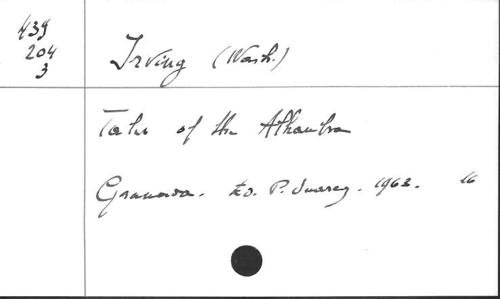 439
204
3
Irving (Wash.)
Tales of the Alhambra
Granada. Ed. P. Suarez. 1963. 16